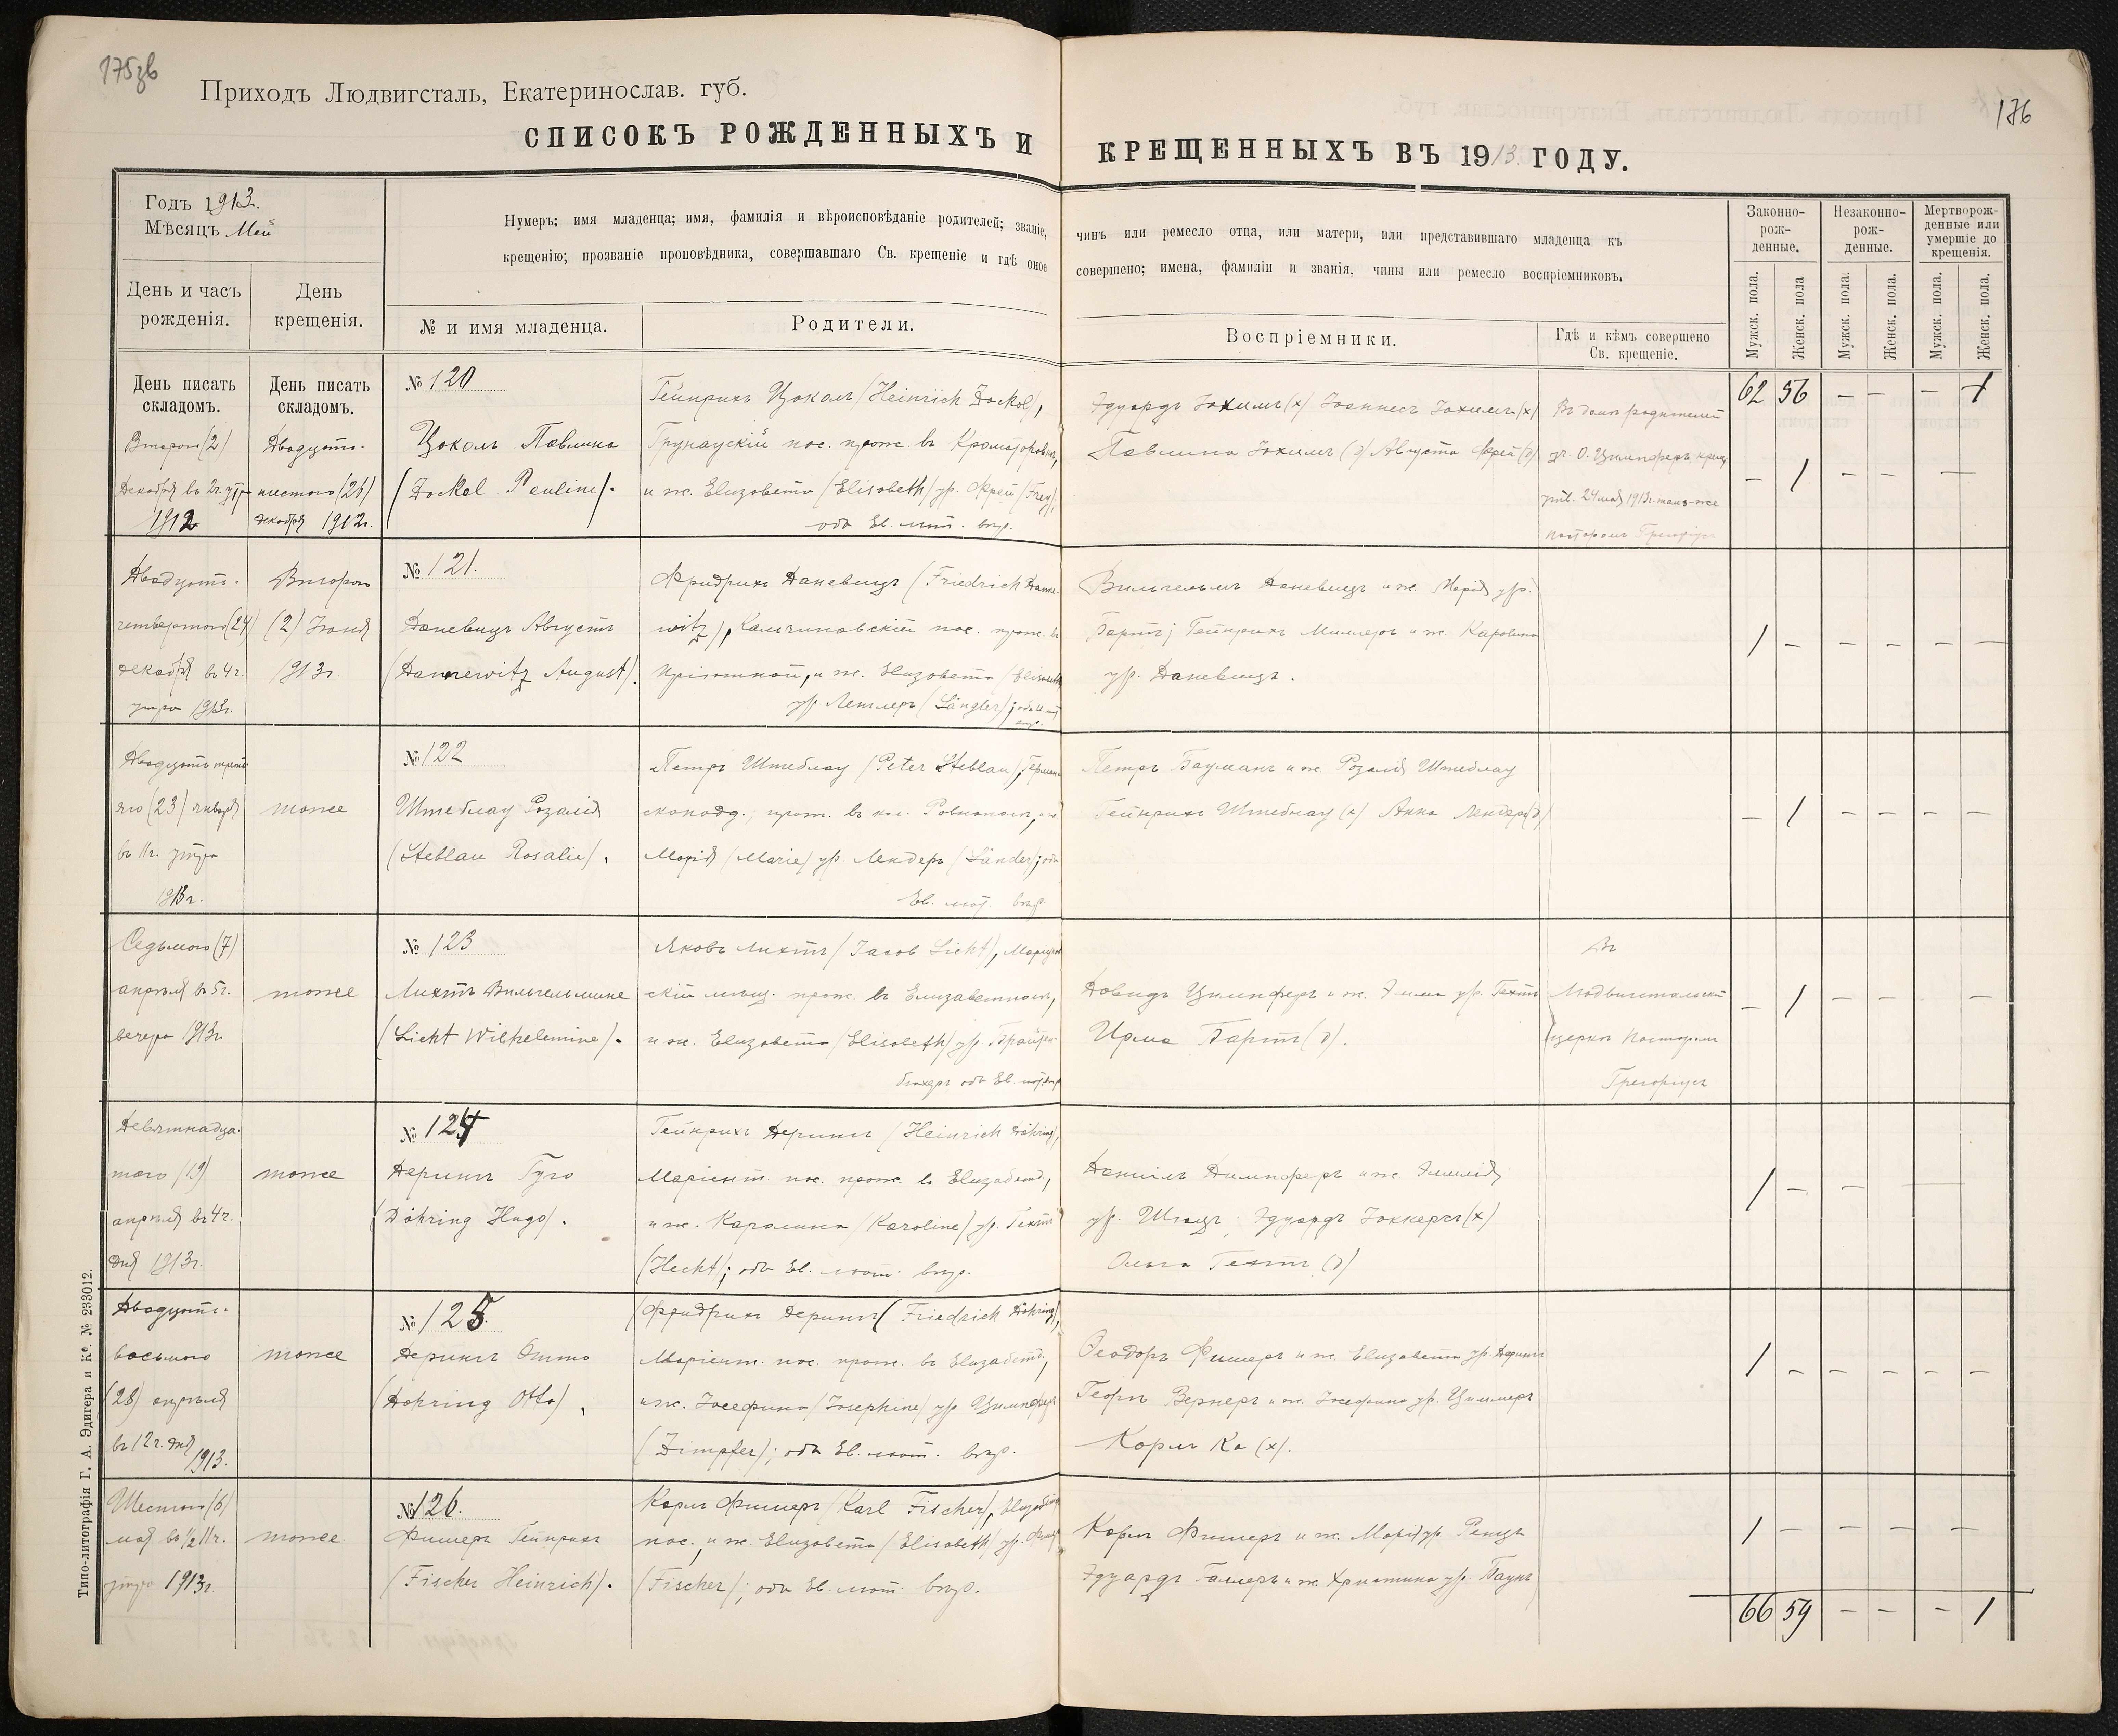 175зв
176
Приходъ Людвигсталь, Екатеринослав. губ.
СПИСОКЪ РОЖДЕННЫХЪ И КРЕЩЕННЫХЪ ВЪ 1913 ГОДУ.
Годъ 1913.
Мѣсяцъ Май
Нумеръ; имя младенца; имя, фамилія и вѣроисповѣданіе родителей; званіе, чинъ или ремесло отца, или матери, или представившаго младенца къ
крещенію; прозваніе проповѣдника, совершавшаго Св. крещеніе и гдѣ оное совершено; имена, фамиліи и званія, чины или ремесло воспріемниковъ.
День и часъ рожденія.
День крещенія.
№ и имя младенца.
Родители.
Воспріемники.
Гдѣ и кѣмъ совершено Св. крещеніе.
Законно-рож-денные.
Незаконно-рож-денные.
Мертворож-денные или умершіе до крещенія.
Мужск. пола.
Женск. пола
Мужск. пола.
Женск. пола.
Мужск. пола.
Женск. пола.
День писать складомъ.
День писать складомъ.
62 56 — — — 1
Второго (2)
декабря въ 2 ч. утр.
1912
Двадцать
шестого (26)
декабря 1912 г.
№ 120
Цокель Павлина
(Zockel Pauline).
Гейнрихъ Цокель (Heinrich Zockel),
Грунаускій пос. прож. въ
и ж. Елизавета (Elisabeth) ур. Фрей (Frey),
оба Ев. лют. вѣр.
Эдуардъ Іохимъ (х) Іоганнесъ Іохимъ (х)
Павлина Іохимъ (д) Августа Фрей (д)
Въ домѣ родителей
уч. О. Цимпферъ
24 мая 1913 г. тамъ-же
пасторомъ Грегоріусъ
— 1 — — —
Двадцать
четвертого (24)
декабря въ 4 ч.
утра
Второго
(2) Іюня
1913 г.
№ 121.
Даневицъ Августъ
(Dannewitz August).
Фридрихъ Даневицъ (Friedrich Danne-
witz), пос. прож. въ
и ж. Елизавета (Elisabeth)
ур. Ленглеръ (Längler);
Вильгельмъ Даневицъ и ж. Марія ур.
Бартъ; Гейнрихъ Миллеръ и ж. Каролина
ур. Даневицъ.
1 — — — — —
Двадцать треть-
яго (23) января
въ 11 ч. утра
1913 г.
тоже
№ 122
Штеблау Розалія
(Steblau Rosalie).
Петръ Штеблау (Peter Steblau), Герман-
скоподд.; прож. въ кол.
Марія (Marie) ур. Лендеръ (Länder); оба
Ев. лют. вѣр.
Петръ Бауманъ и ж. Розалія Штеблау
Гейнрихъ Штеблау (х) Анна Лендеръ (д)
— 1 — — — —
Седьмого (7)
апрѣля въ 5 ч.
вечера 1913 г.
тоже
№ 123
Лихтъ Вильгельмине
(Licht Wilhelemine).
Яковъ Лихтъ (Jacob Licht), Маріуполь-
скій мѣщ. прож. въ
и ж. Елизавета (Elisabeth) ур.
оба Ев. лют. вѣр.
Давидъ Цимпферъ и ж. Эмма ур. Гехтъ
Ирма Бартъ (д).
Въ
Людвигстальской
церкви Пасторомъ
Грегоріусъ
— 1 — — —
Девятнадца-
таго (19)
апрѣля въ 4 ч.
дня 1913 г.
тоже
№ 124
Дерингъ Гуго
(Döhring Hugo).
Гейнрихъ Дерингъ (Heinrich Döhring),
Маріент. пос. прож. въ
и ж. Каролина (Karoline) ур. Гехтъ
(Hecht); оба Ев. лют. вѣр.
Даніилъ Цимпферъ и ж. Эмилія
ур. Эдуардъ Іоккерсъ (х)
Ольга Гехтъ (д)
1 — — —
Двадцать
восьмого
(28) апрѣля
въ 12 ч. дня
1913.
тоже
№ 125.
Дерингъ Отто
(Döhring Otto),
Фридрихъ Дерингъ (Friedrich Döhring),
Маріент. пос. прож. въ
и ж. Іозефина (Josephine) ур. Цимпферъ
(Zimpfer); оба Ев. лют. вѣр.
Ѳеодоръ Фишеръ и ж. Елизавета ур. Дерингъ
Георгъ Вернеръ и ж. Іозефина ур. Циммеръ
Карлъ Ка (х).
1 — — — — —
Шестого (6)
мая въ ½ 11 ч.
утра 1913 г.
тоже
№ 126.
Фишеръ Гейнрихъ
(Fischer Heinrich).
Карлъ Фишеръ (Karl Fischer),
пос., и ж. Елизавета (Elisabeth) ур. Фишеръ
(Fischer); оба Ев. лют. вѣр.
Карлъ Фишеръ и ж. Марія ур.
Эдуардъ Галлеръ и ж. Христина ур. Баумъ
1 — — — —
66 59 — — — 1
Типо-литографія Г. А. Эдигера и Кº. № 233012.